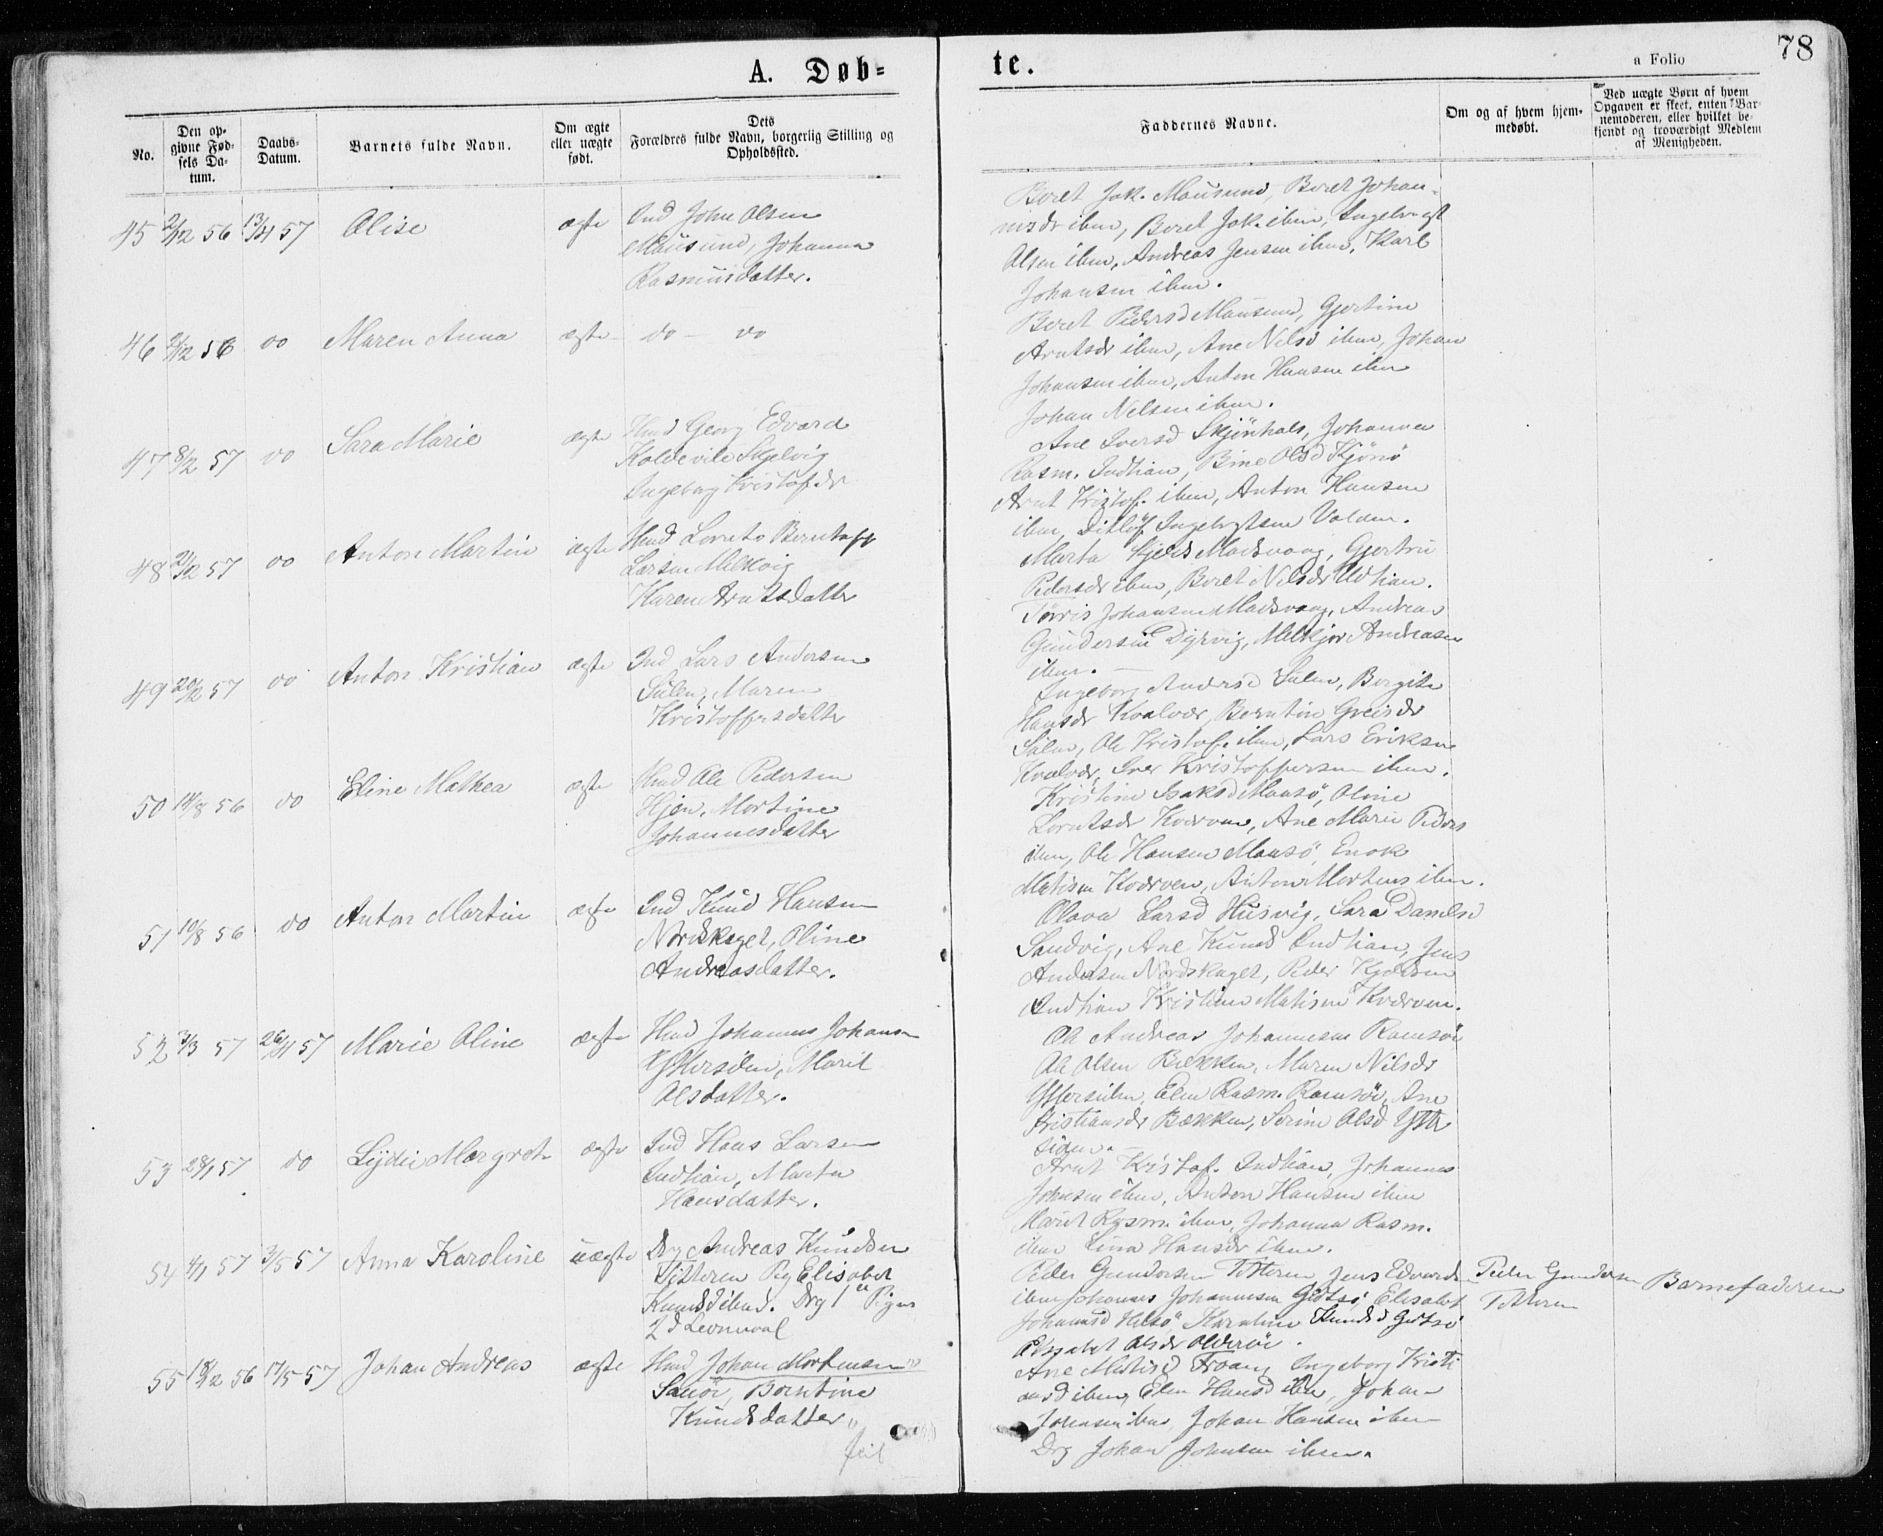 78
A. Døb-
te.
a Folio
No.
Den op-
givne Fød-
sels Da-
tum.
Daabs-
Datum.
Barnets fulde Navn.
Om ægte
eller uægte
født.
Dets
Forældres fulde Navn, borgerlig Stilling og
Opholdssted.
Faddernes Navne.
Om og af hvem hjem-
medøbt.
Ved uægte Børn af hvem
Opgaven er skeet, enten Bar-
nemoderen, eller hvilket be-
kjendt og troværdigt Medlem
af Menigheden.
45 2/12 56 13/4 57 Olise ægte Ind John Olsen
Mausund, Johanna
Rasmusdatter.
Beret Jak. Mausund, Beret Johan-
nisdr ibm, Beret Jak. ibm, Ingebrigt
Olsen ibm, Andreas Jensen ibm, Karl
Johansen ibm.
46 2/12 56 do Maren Anna ægte do - do
Beret Pedersd Mausund, Gjertine
Arntsdr ibm, Ane Nilsd ibm, Johan
Johansen ibm, Anton Hansen ibm
Johan Nelsen ibm.
47 8/2 57 do Sara Marie ægte Hmd Georg Edvard
Koldevile Skjelvig
Ingeborg Kristof.dr
Ane Iversd Skjönhals, Johanna
Rasm. Indtian, Bine Olsd Kjönö
Arnt Kristof. ibm, Anton Hansen
ibm, Ditlöf Ingebrgtsen Valden.
48 21/2 57 do Anton Martin ægte Hmd Lornts Berntoft
Larsen Melkvig
Karen Arntsdatter
Marta Madsvaag, Gjertru
Pedersdr ibm, Beret Nilsdr Udtian.
Tørris Johansen Madsvaag, Andreas
Gundersen Dyrvig, Melkjør Andreasen
ibm.
49 20/2 57 do Anton Kristian ægte Ind Lars Andersen
Sulen, Maren
Kristoffersdatter
Ingeborg Andersd Sulen, Bergite
Hansdr Kvalvær, Berntine Greisdr
Sulen, Ole Kristof. ibm, Lars Eriksen
Kvalvær, Iver Kristoffersen ibm.
50 14/8 56 do Eline Mathea ægte Hmd Ole Pedersen
Hjen, Mortine
Johannesdatter
Kristine Isaksd Mausö, Oline
Lorntsdr Kverven, Ane Marie Peders
ibm, Ole Hansen Mausö, Enok
Matisen Kverven, Anton Mortens ibm.
51 10/8 56 do Anton Martin ægte Ind Knud Hansen
Nordskaget, Oline
Andreasdatter.
Olava Larsd Husvig, Sara Danilsd
Sandvig, Ane Knuds Indtian, Jens
Andersen Nordskaget, Peder Kjeldsen
Indtian Kristian Matisen Kverven.
52 3/3 57 26/4 57 Marie Oline ægte Hmd Johannes Johans
Yttersiden, Marit
Olsdatter.
Ole Andreas Johannesen Ramsöi
Ole Olsen Bekken, Maren Nilsdr
Yttersiden, Elen Rasm. Ramsöi, Ane
Kristiansdr Bækken, Serine Olsd Ytter
siden.
53 28/1 57 do Lydie Margret ægte Ind Hans Larsen
Indtian, Marta
Hansdatter.
Arnt Kristof. Indtian, Johannes
Johnsen ibm, Anton Hansen ibm
Marit Rasm. ibm, Johanna Rasm.
ibm Lina Hansdr ibm.
54 4/1 57 3/5 57 Anna Karoline uægte Drg Andreas Knudsen
Titteren Pig Elisabet
Knudsd ibmd. Drg 1ste Pigens
2d Leiermaal
Peder Gundersen Titteren Jens Edvardsen
ibm Johannes Johannesen Gjetsö, Elisabet
Johannsd Helsö Karoline Knudsd Gjetsö
Elisabet Olsdr Olderöi.
Peder Gundersen
Titteren
Barnefaderen
55 18/12 56 17/5 57 Johan Andreas ægte Hmd Johan Mortensen
Sauöi, Berntine
Knudsdatter
feil
Ane Matisd Froang Ingeborg Kristi
ansd ibm, Elen Hansd ibm, Johan
Johnsen ibm Johan Hansen ibm
Drg Johan Johnsen ibm.